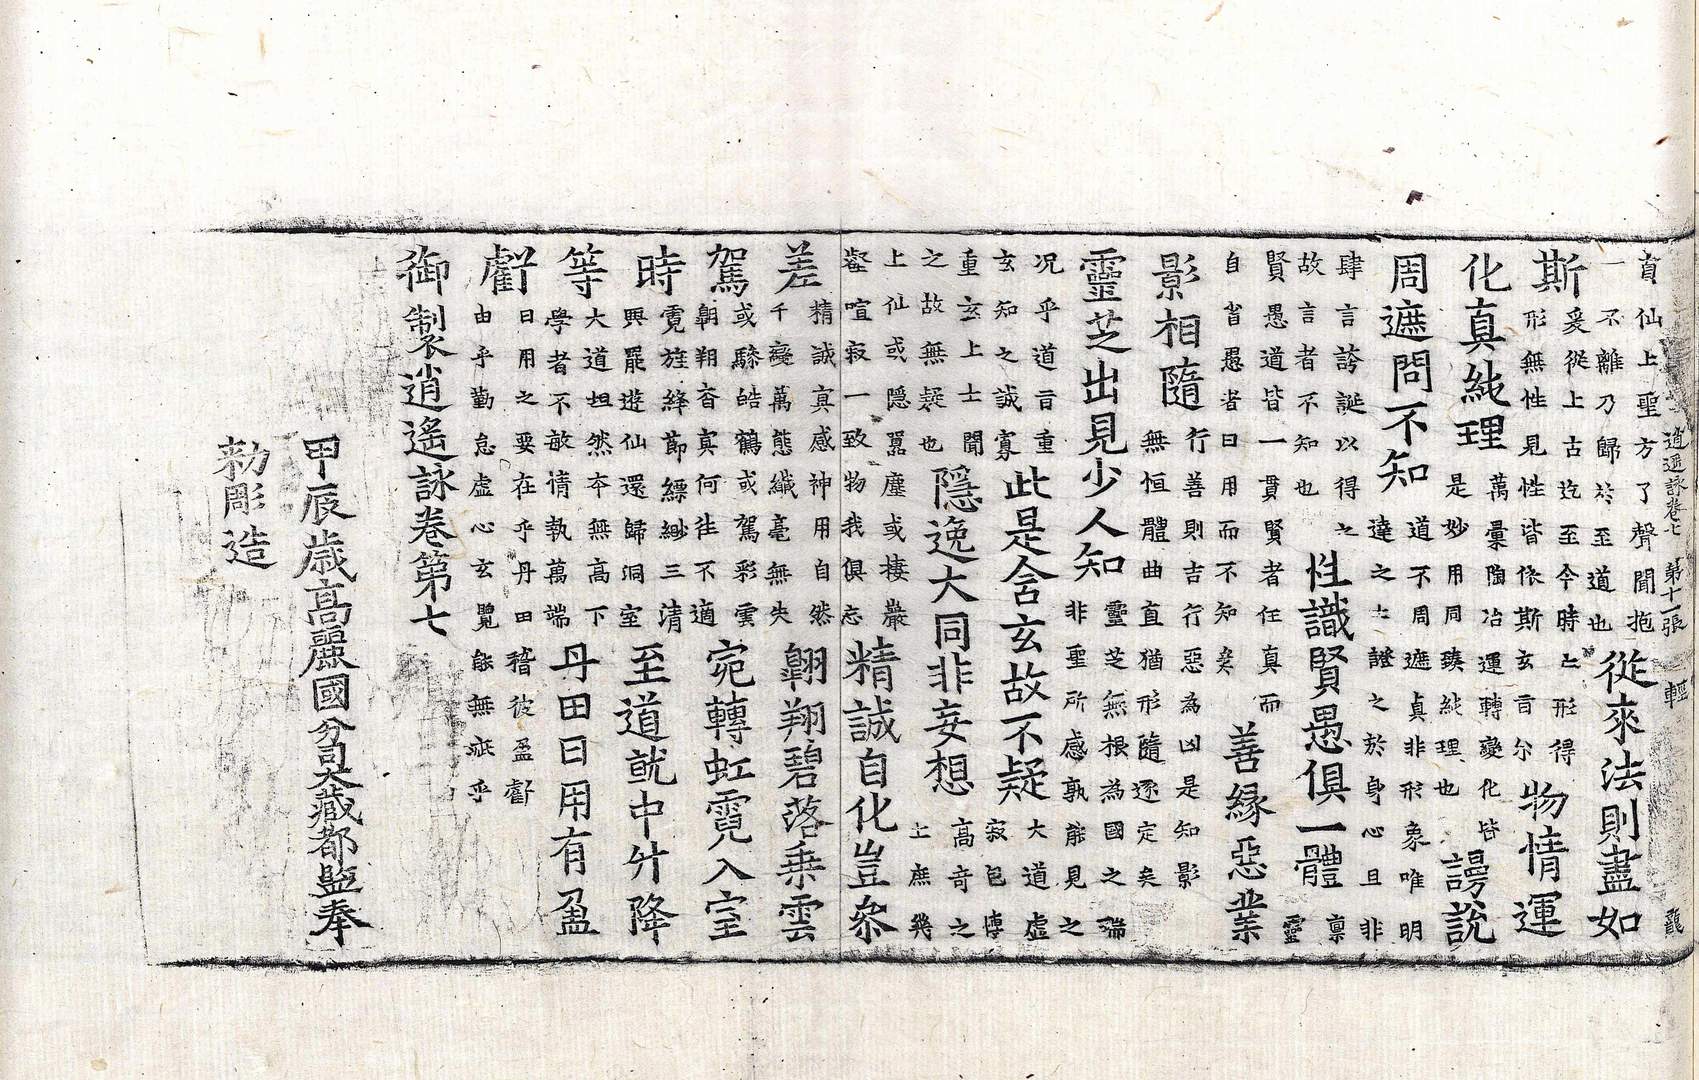 逍遥詠卷七 第十一張 輕
真仙上聖方了聲聞抱
一不離乃歸於至道也
從來法則盡如
斯
爰從上古迄至今時亡形得
形無性見性皆依斯玄言尔
物情運
化真純理
萬彙陶冶運轉變化皆
是妙用同臻純理也
謾說
周遮問不知
道不周遮真非形象唯明
達之士證之於身心且非
肆言誇誕以得之
故言者不知也
性識賢愚俱一體
稟
靈
賢愚道皆一貫賢者任真而
自省愚者日用而不知矣
善緣惡業
影相隨
行善則吉行惡為凶是知影
無恒體曲直猶形隨逐定矣
靈芝出見少人知
靈芝無根為國之瑞
非聖所感孰能見之
况乎道言重
玄知之誠寡
此是含玄故不疑
大道虛
寂包博
重玄上士聞
之故無疑也
隱逸大同非妄想
高奇之
士庶幾
上仙或隱嚚塵或棲巖
壑喧寂一致物我俱忘
精誠自化豈參
差
精誠真感神用自然
千變萬態纖毫無失
翺翔碧落乘雲
駕
或驂皓鶴或駕彩雲
翺翔杳冥何往不適
宛轉虹霓入室
時
霓旌絳節縹緲三清
興罷遊仙還歸洞室
至道就中升降
等
大道坦然本無高下
學者不敏情執萬端
丹田日用有盈
虧
日用之要在乎丹田稽彼盈虧
由乎勤怠虛心玄覽能無疵乎
御製逍遙詠卷第七
甲辰歲高麗國分司大藏都監奉
勑彫造